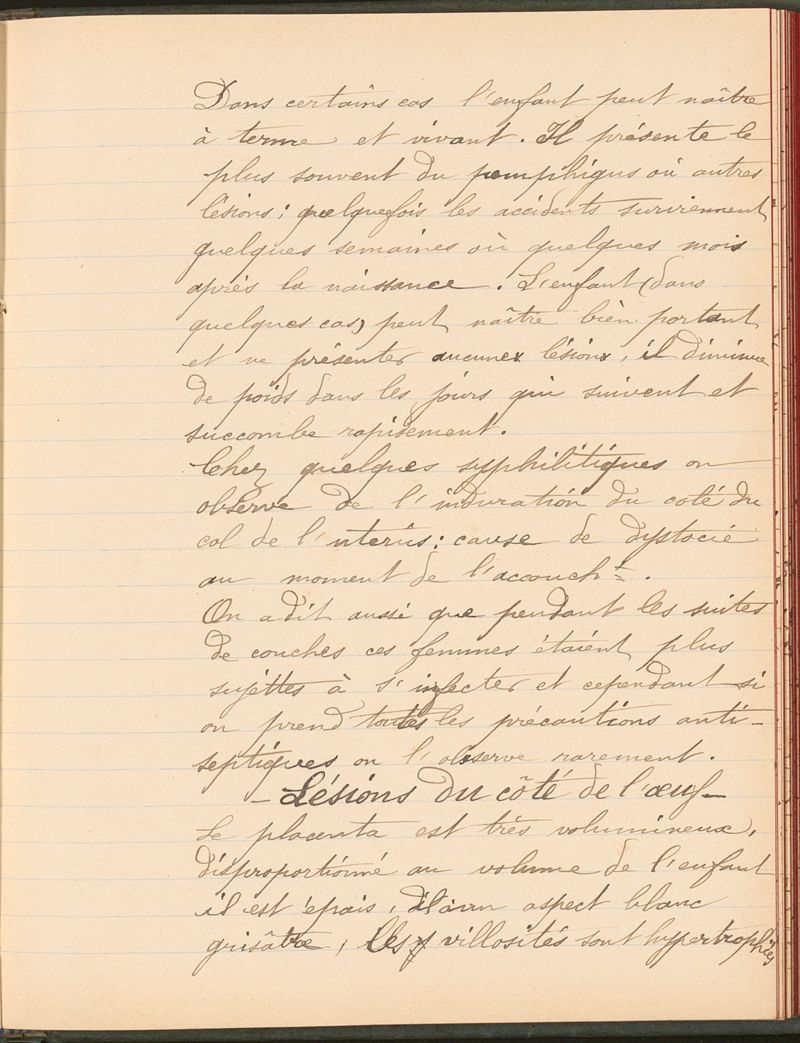 Dans certains cas l'enfant peut naître
à terme et vivant. Il présente le
plus souvent du pemphigus où autres
lésions ; quelquefois les accidents surviennent
quelques semaines où quelques mois
après la naissance. L'enfant (dans
quelques cas) peut naître bien portant
et ne présenter aucune lésion, il diminue
de poids dans les jours qui suivent et
succombe rapisement.
Chez quelques syphilitiques on
observe de l'induration du coté du
col de l'uterus : cause de dystocie
au moment de l'accouch.t.
On a dit aussi que pendant les suites
de couches ces femmes étaient plus
sujettes à s'infecter et cependant si
on prend toutes les précautions anti-
septiques on l'observe rarement.
- Lésions du côté de l'œuf -
Le placenta est très volumineux,
disproportionné au volume de l'enfant
il est épais, il a un aspect blanc
grisâtre, les villosités sont hypertrophiées